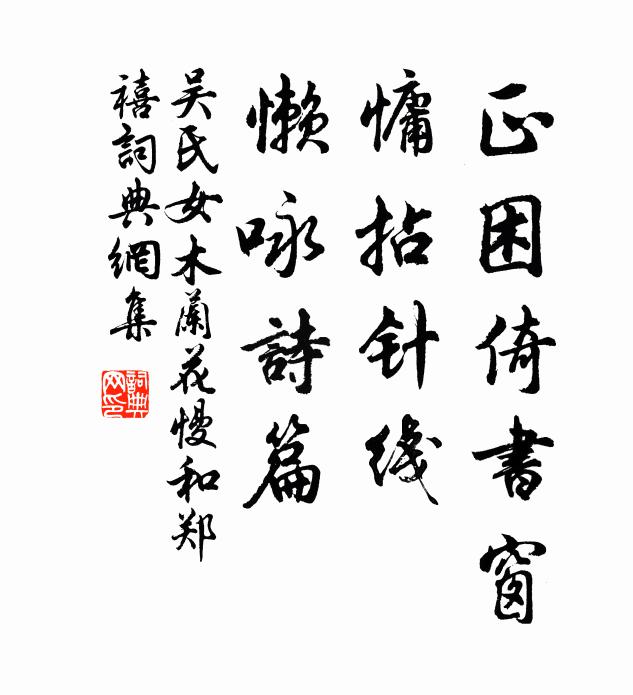 正困倚書窗
慵拈针线
懒咏詩篇
吴氏女木蘭花慢和郑
禧詞典網集
詞典网印